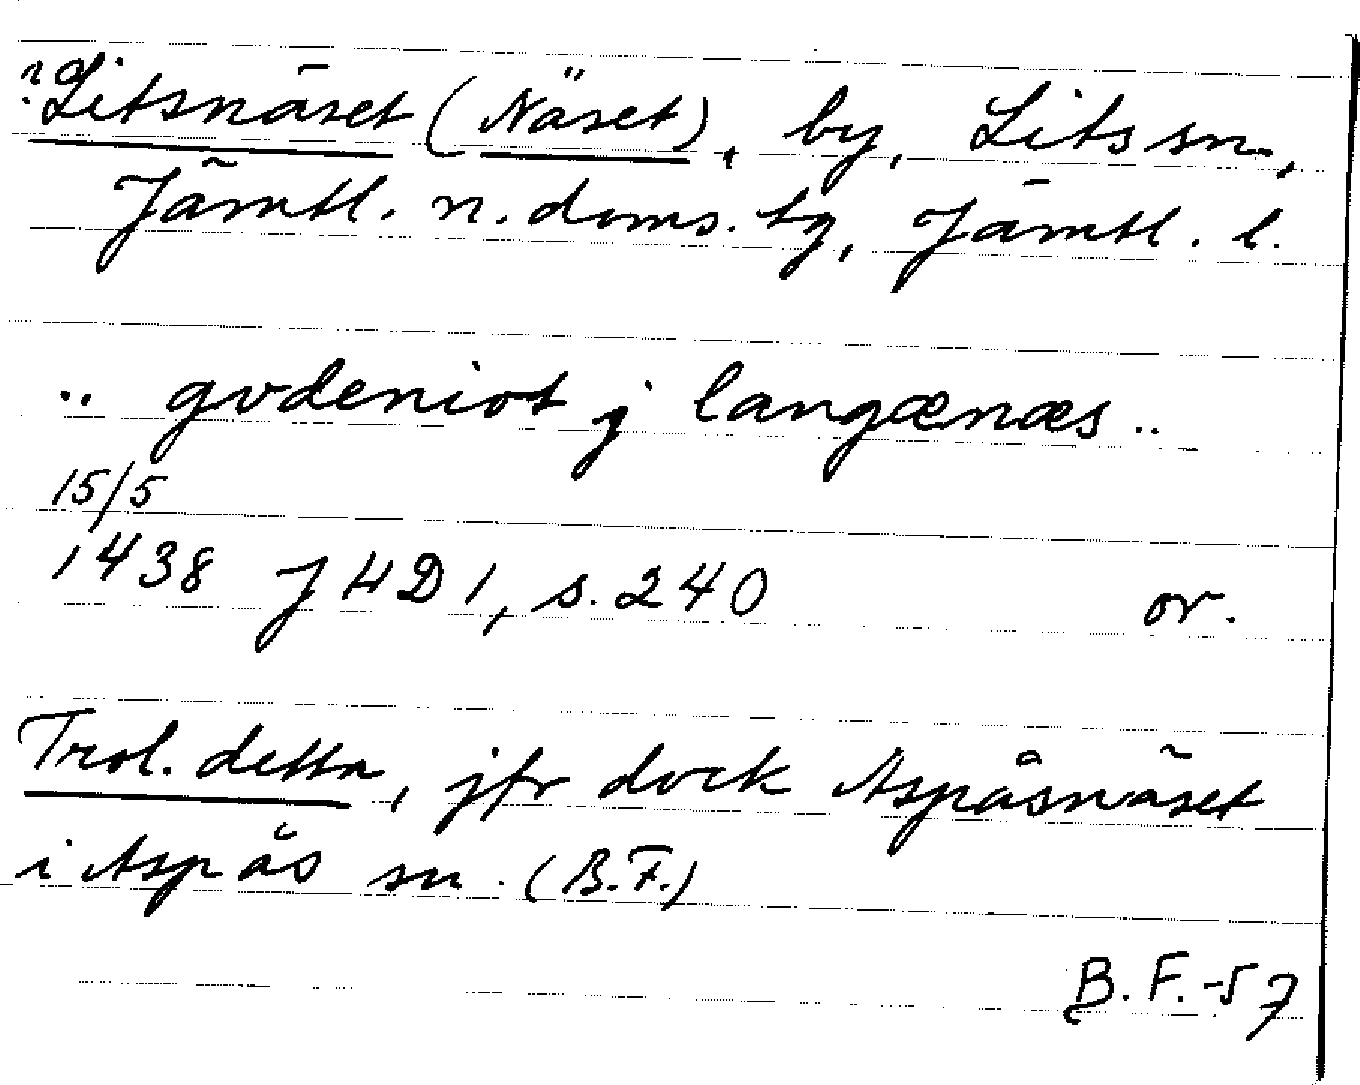 ?Litsnäset (Näset), by, Lits sn,
Jämtl. n. doms. tg, Jämtl. l.
.. gvdeniot j langænæs ..
15/5
1438 JHD 1, s. 240 or.
Trol. detta, jfr dock Aspåsnäset
i Aspås sn. (B.F.)
B.F.-57